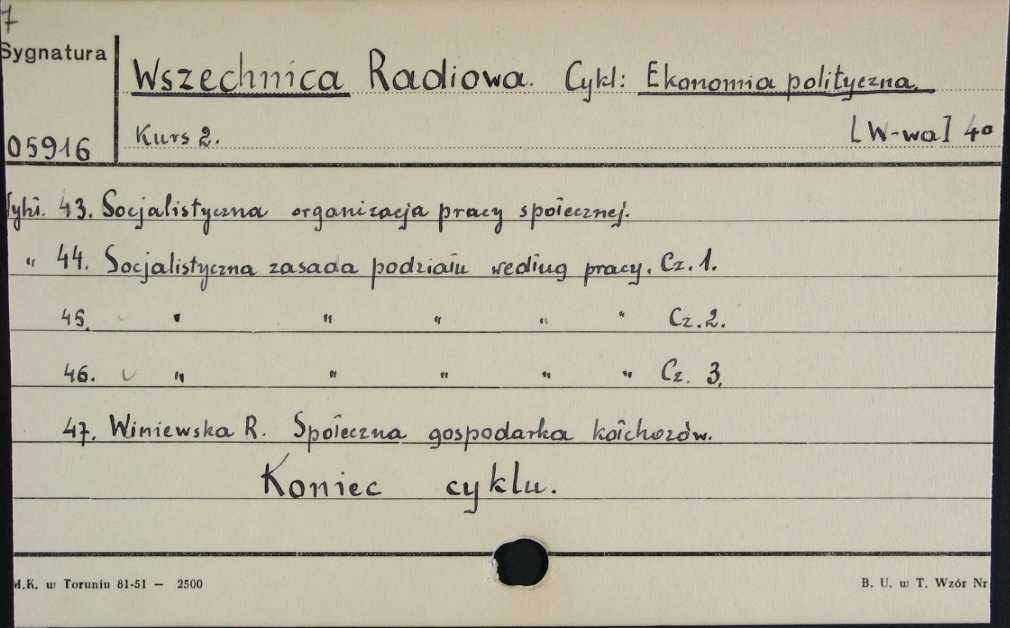 7
Sygnatura
Wszechnica Radiowa. Cykl: Ekonomia polityczna.
05916
Kurs 2. [W-wa] 4°
Wykł. 43. Socjalistyczna organizacja pracy społecznej.
" 44. Socjalistyczna zasada podziału według pracy. Cz. 1.
45. " " " " " Cz. 2.
46. " " " " " Cz. 3.
47. Winiewska R. Społeczna gospodarka kołchozów.
Koniec cyklu.
M.K. w Toruniu 81-51 — 2500
B. U. w T. Wzór Nr